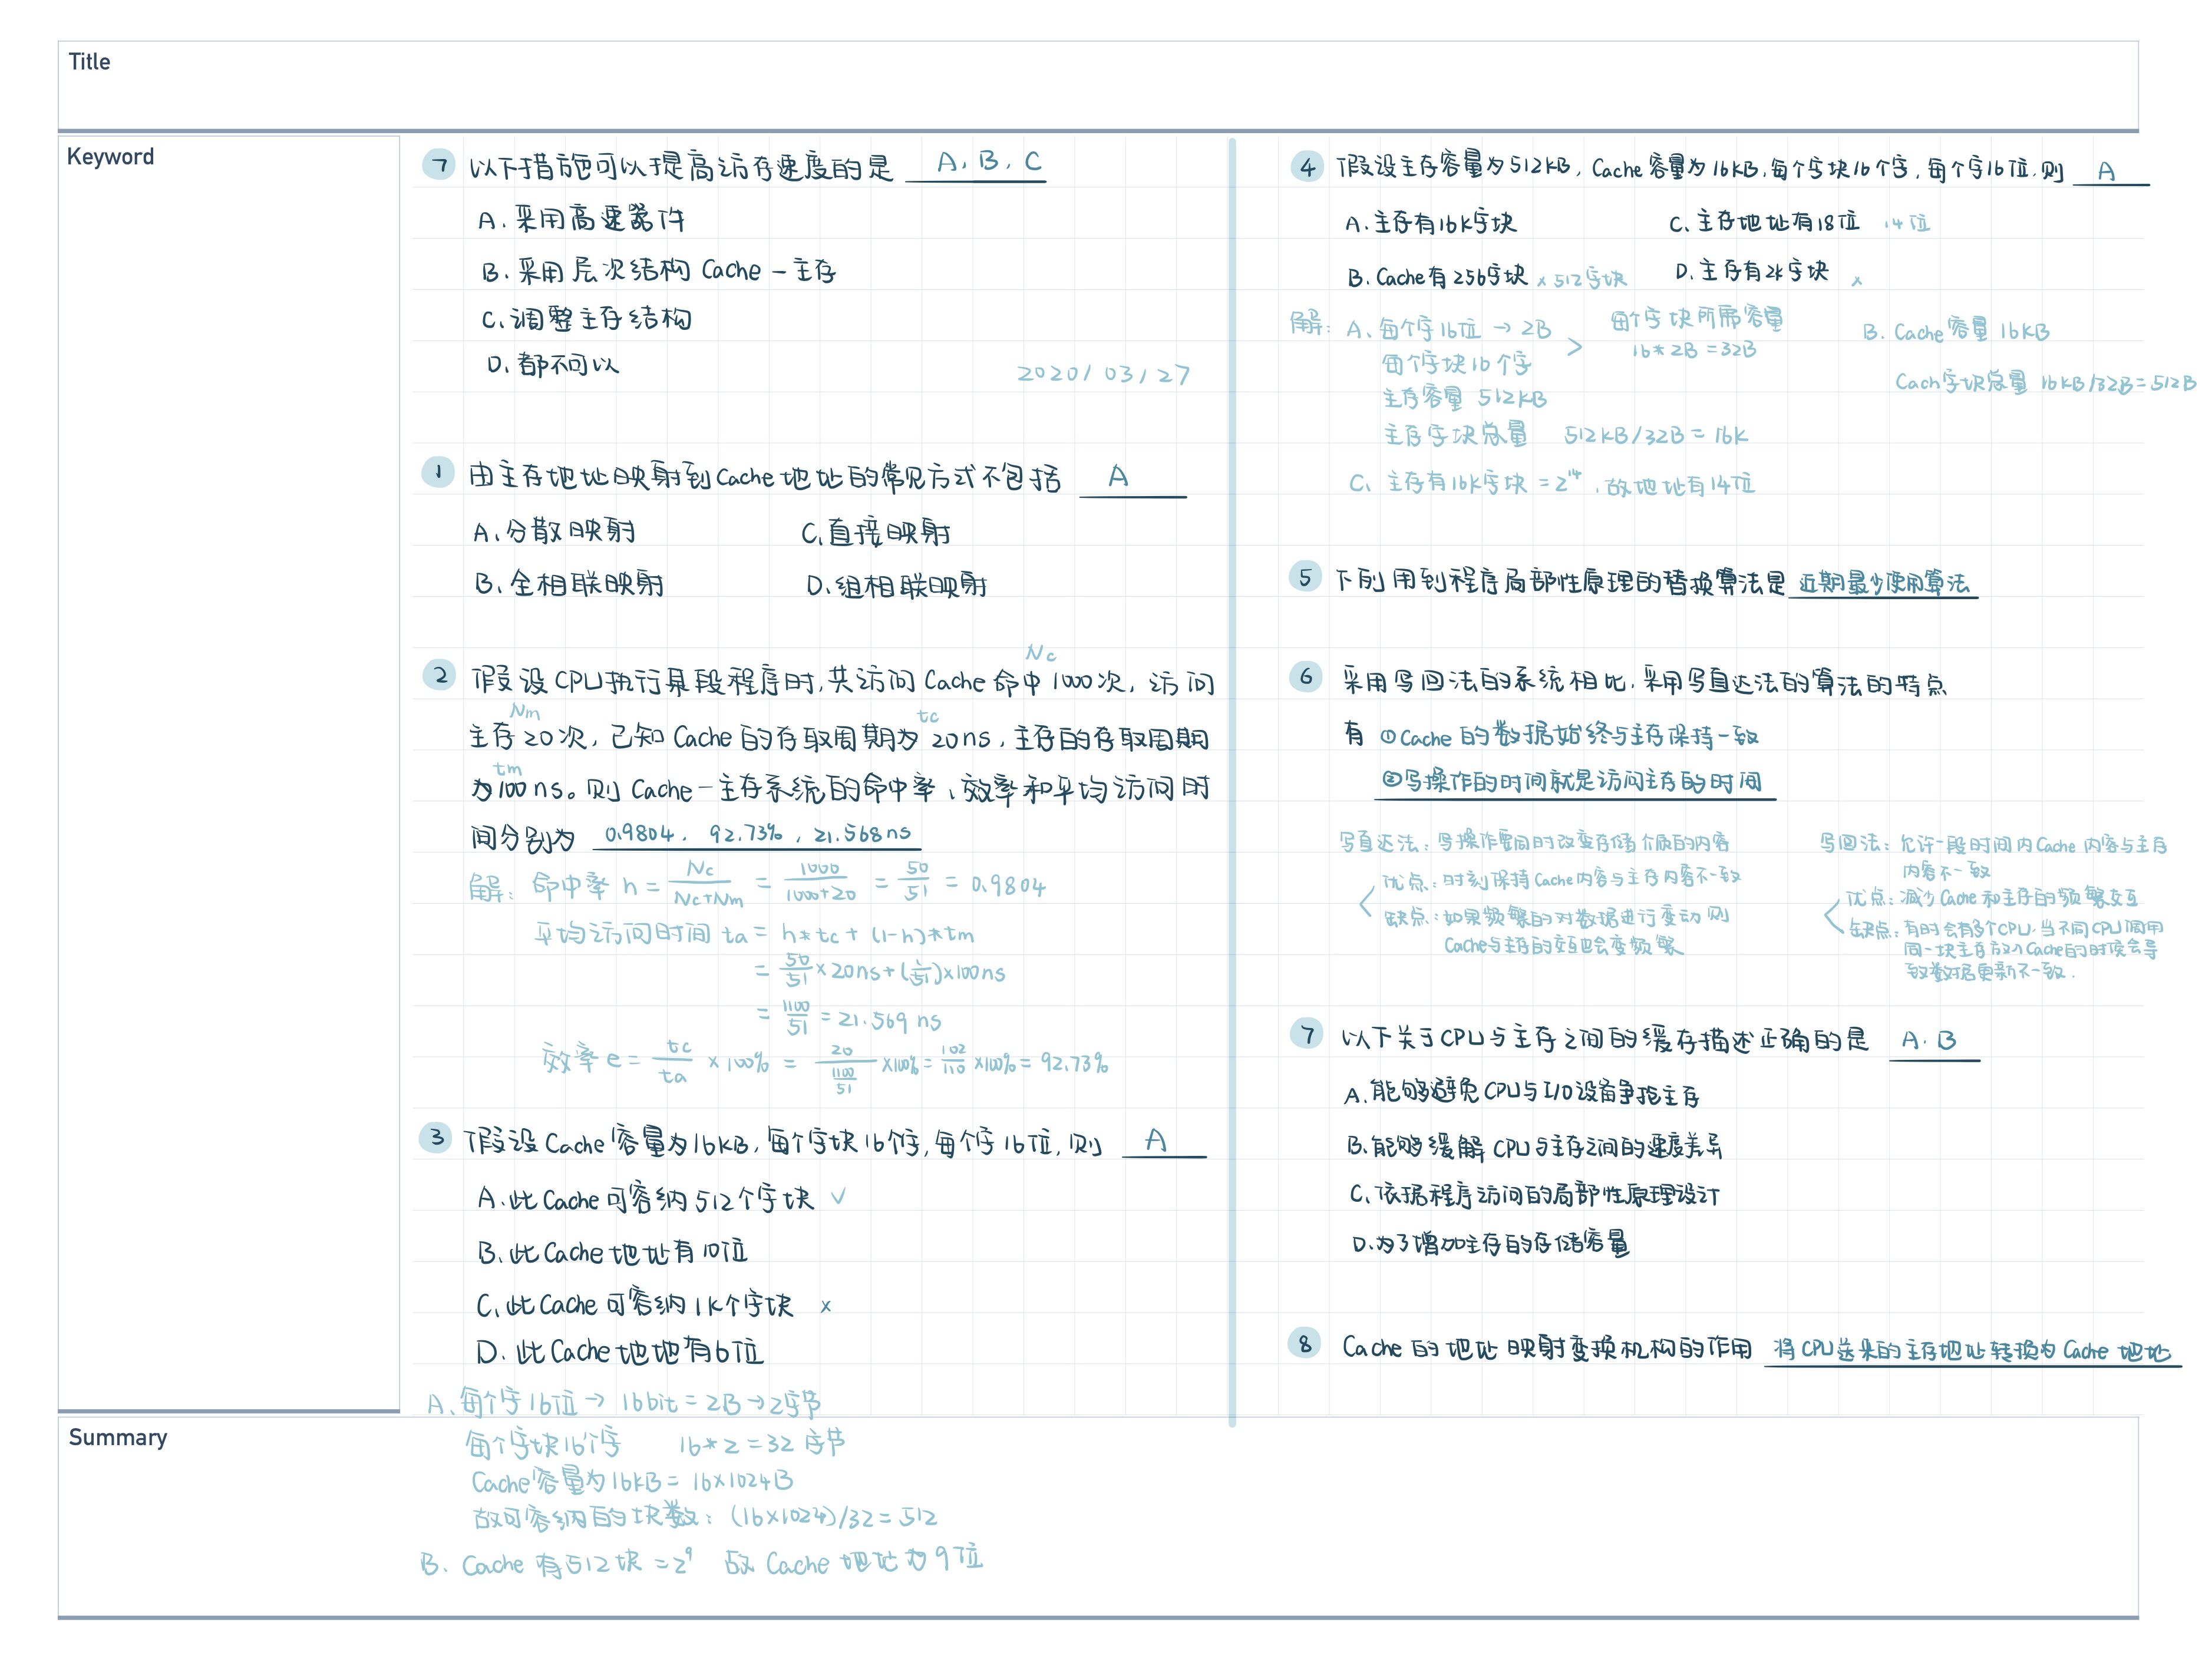 Title
Keyword
7 以下措施可以提高访存速度的是 A、B、C
A.采用高速器件
B.采用层次结构 Cache-主存
C.调整主存结构
D.都不可以
2020/03/27
1 由主存地址映射到Cache地址的常见方式不包括 A
A.分散映射 C.直接映射
B.全相联映射 D.组相联映射
Nc
2 假设CPU执行某段程序时,共访问Cache命中1000次,访问
Nm tc
主存20次,已知Cache的存取周期为20ns,主存的存取周期
tm
为100ns。则Cache-主存系统的命中率、效率和平均访问时
间分别为 0.9804、92.73%,21.568ns
解: 命中率 h = Nc/(Nc+Nm) = 1000/(1000+20) = 50/51 = 0.9804
平均访问时间 ta = h*tc + (1-h)*tm
= 50/51 × 20ns + (1/51) × 100ns
= 1100/51 = 21.569 ns
效率 e = tc/ta × 100% = 20/(1100/51) ×100% = 102/110 ×100% = 92.73%
3 假设Cache容量为16KB,每个字块16个字,每个字16位,则 A
A.此Cache可容纳512个字块 √
B.此Cache地址有10位
C.此Cache可容纳1K个字块 x
D.此Cache地地有6位
A、每个字16位→16bit=2B→2字节
每个字块16个字 16*2=32字节
Cache容量为16KB=16×1024B
故可容纳的块数:(16×1024)/32=512
B. Cache有512块=2⁹ 故Cache地址为9位
4 假设主存容量为512KB,Cache容量为16KB,每个字块16个字,每个字16位,则 A
A.主存有16K字块 C、主存地址有18位 14位
B.Cache有256字块 x 512字块 D.主存有2K字块 x
解: A、每个字16位→2B > 每个字块所需容量 B. Cache容量16KB
每个字块16个字 16*2B=32B
Cach字块总量 16KB/32B=512B
主存容量 512KB
主存字块总量 512KB/32B=16K
C、主存有16K字块=2¹⁴,故地址有14位
5 下列用到程序局部性原理的替换算法是 近期最少使用算法
6 采用写回法的系统相比,采用写直达法的算法的特点
有 ①Cache的数据始终与主存保持一致
②写操作的时间就是访问主存的时间
写直达法:写操作要同时改变存储介质的内容
优点:时刻保持Cache内容与主存内容不一致
缺点:如果频繁的对数据进行变动则
Cache与主存的交互也会变频繁
写回法:允许一段时间内Cache内容与主存
内容不一致
优点:减少Cache和主存的频繁交互
缺点:有时会有多个CPU,当不同CPU调用
同一块主存放入Cache的时候会导
致数据更新不一致.
7 以下关于CPU与主存之间的缓存描述正确的是 A.B
A.能够避免CPU与I/O设备争抢主存
B.能够缓解CPU与主存之间的速度差异
C.依据程序访问的局部性原理设计
D.为了增加主存的存储容量
8 Cache的地址映射变换机构的作用 将CPU送来的主存地址转换为Cache地地
Summary